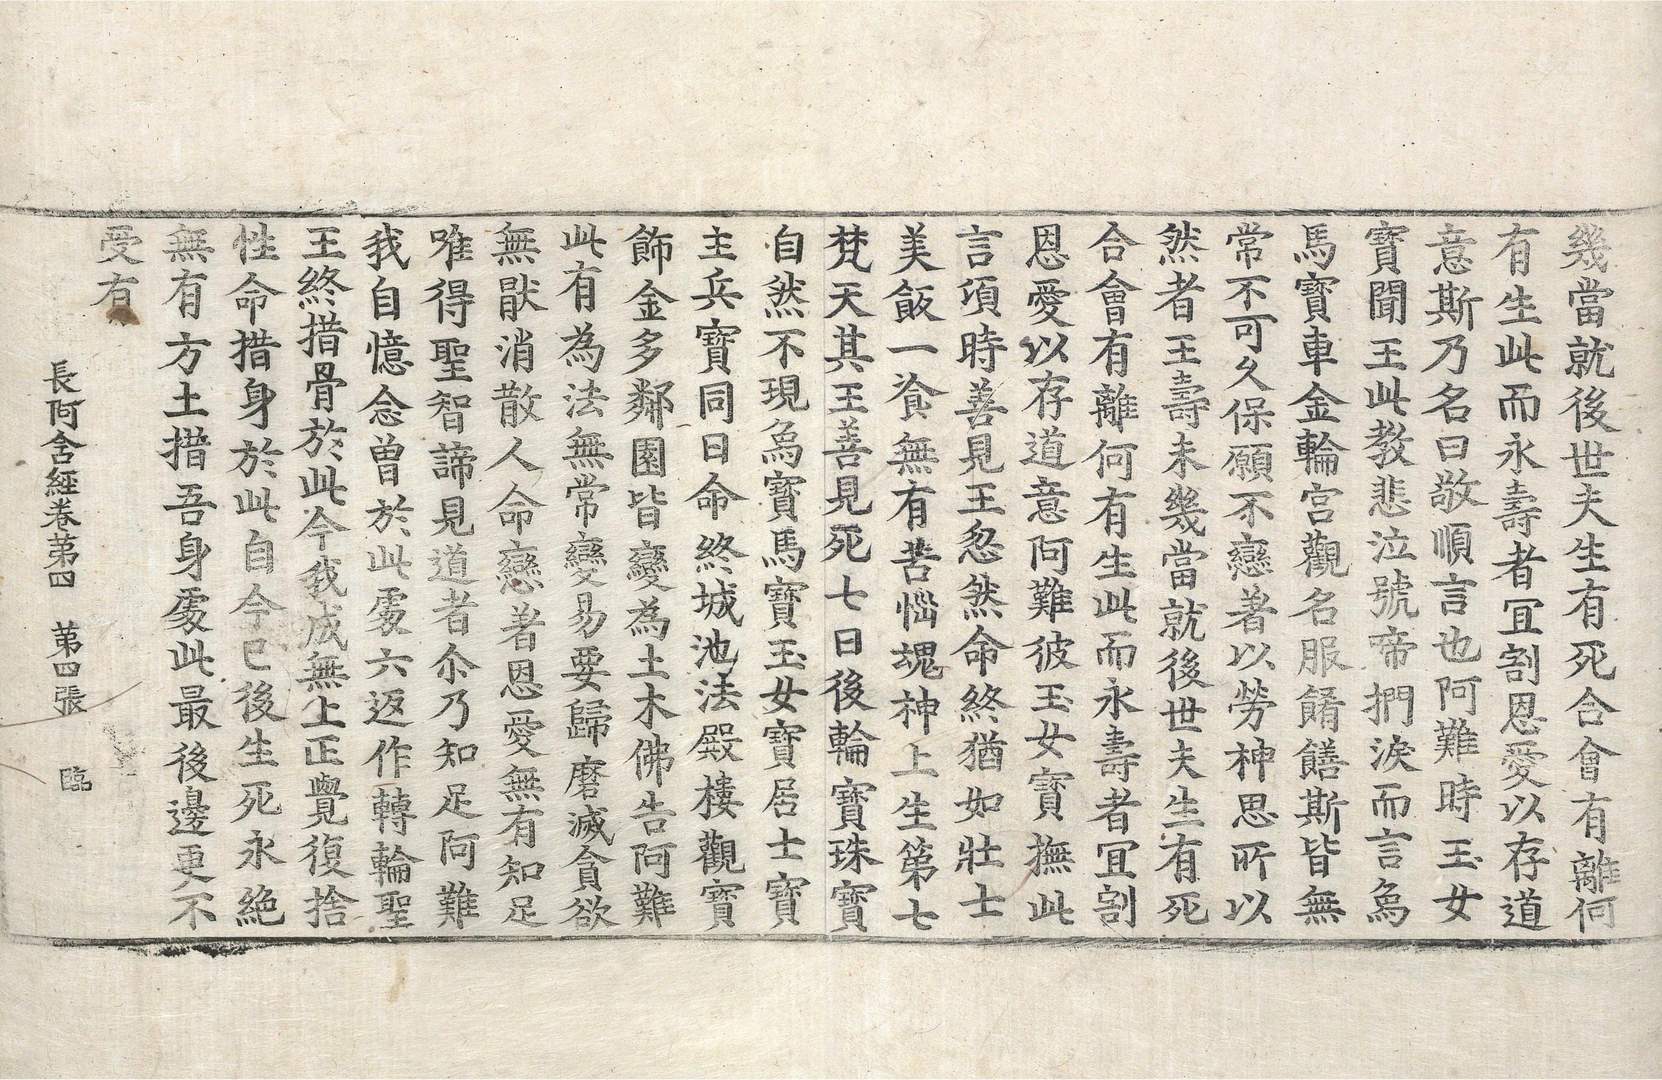 幾當就後世夫生有死合會有離何
有生此而永壽者冝割恩愛以存道
意斯乃名曰敬順言也阿難時玉女
寶聞王此教悲泣號啼捫淚而言爲
馬寶車金輪宮觀名服餚饍斯皆無
常不可久保願不戀著以勞神思所以
然者王壽未幾當就後世夫生有死
合會有離何有生此而永壽者冝割
恩愛以存道意阿難彼玉女寶撫此
言湏時善見王忽然命終猶如壯士
美飯一飡無有苦惱魂神上生第七
梵天其王善見死七日後輪寶珠寶
自然不現爲寶馬寶玉女寶居士寶
主兵寶同日命終城池法殿樓觀寶
飾金多鄰園皆變為土木佛告阿難
此有為法無常變易要歸磨滅貪欲
無猒消散人命戀著恩愛無有知足
唯得聖智諦見道者尒乃知足阿難
我自憶念曾於此處六返作轉輪聖
王終措骨於此今我成無上正覺復捨
性命措身於此自今已後生死永絕
無有方土措吾身處此最後邊更不
受有
長阿含經卷第四　第四張　臨